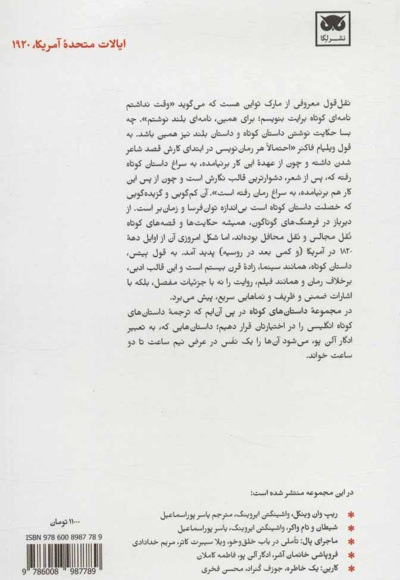 نشر لگا
ایالات متحدهٔ آمریکا، ۱۹۲۰
نقل‌قول معروفی از مارک تواین هست که می‌گوید «وقت نداشتم
نامه‌ای کوتاه برایت بنویسم؛ برای همین، نامه‌ای بلند نوشتم». چه
بسا حکایت نوشتن داستان کوتاه و داستان بلند نیز همین باشد. به
قول ویلیام فاکنر «احتمالاً هر رمان‌نویسی در ابتدای کارش قصد شاعر
شدن داشته و چون از عهدهٔ این کار برنیامده، به سراغ داستان کوتاه
رفته که، پس از شعر، دشوارترین قالب نگارش است و چون از پس این
کار هم برنیامده، به سراغ رمان رفته است». آن کم‌گویی و گزیده‌گویی
که خصلت داستان کوتاه است بی‌اندازه توان‌فرسا و زمان‌بر است. از
دیرباز در فرهنگ‌های گوناگون، همیشه حکایت‌ها و قصه‌های کوتاه
نُقل مجالس و نَقل محافل بوده‌اند، اما شکل امروزی آن از اوایل دههٔ
۱۸۲۰ در آمریکا (و کمی بعد در روسیه) پدید آمد. به قول پیتس،
داستان کوتاه، همانند سینما، زادهٔ قرن بیستم است و این قالب ادبی،
برخلاف رمان و همانند فیلم، روایت را نه با جزئیات مفصل، بلکه با
اشارات ضمنی و ظریف و نماهایی سریع، پیش می‌برد.
در مجموعهٔ داستان‌های کوتاه در پی آن‌ایم که ترجمهٔ داستان‌های
کوتاه انگلیسی را در اختیارتان قرار دهیم؛ داستان‌هایی که، به تعبیر
ادگار آلن پو، می‌شود آن‌ها را یک نفس در عرض نیم ساعت تا دو
ساعت خواند.
در این مجموعه منتشر شده است:
ریپ وان وینکل، واشینگتن ایروینگ، مترجم یاسر پوراسماعیل
شیطان و تام واکر، واشینگتن ایروینگ، یاسر پوراسماعیل
ماجرای پال: تأملی در باب خلق‌وخو، ویلا سیبرت کاتر، مریم خدادادی
فروپاشی خاندان آشر، ادگار آلن پو، فاطمه کاملان
کارین: یک خاطره، جوزف کنراد، محسن فخری
۱۱۰۰۰ تومان
ISBN 978 600 8987 78 9
9 786008 987789